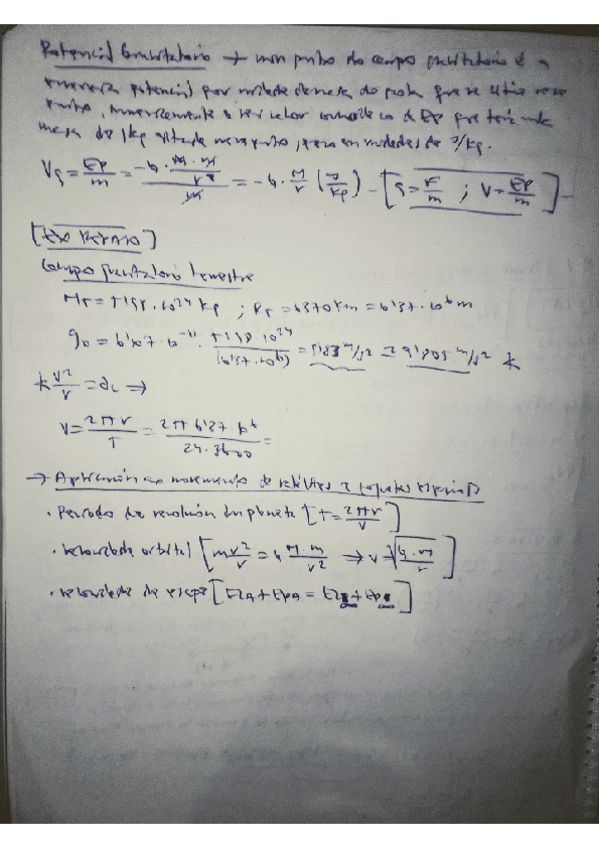 Potencial Gravitatorio → nun punto do campo gravitatorio é a
enerxía potencial por unidade de masa do corpo que se sitúa nese
punto, numericamente o seu valor coincide co de Ep que tería unha
masa de 1kg situada nese punto, en unidades de J/kg.
Vg = Ep/m = (-G · M · m/r)/m = -G · M/r (J/kg) - [g = F/m ; V = Ep/m] -
Campo gravitatorio terrestre
MT = 5'98 · 10^24 kg ; RT = 6370 km = 6'37 · 10^6 m
g0 = 6'67 · 10^-11 · 5'98 · 10^24/(6'37 · 10^6)² = 9'83 m/s² ≃ 9'805 m/s² *
* V²/r = ac ⇒
V = 2πr/T = 2π 6'37 · 10^6/24 · 3600 =
→ Aplicación ao movemento de satélites e
· Período de revolución dun planeta [T = 2πr/V]
· Velocidade orbital [mv²/r = G M · m/r² ⇒ v = √(G · M/r)]
· Velocidade de escape [EcA + EpA = EcB + EpB]